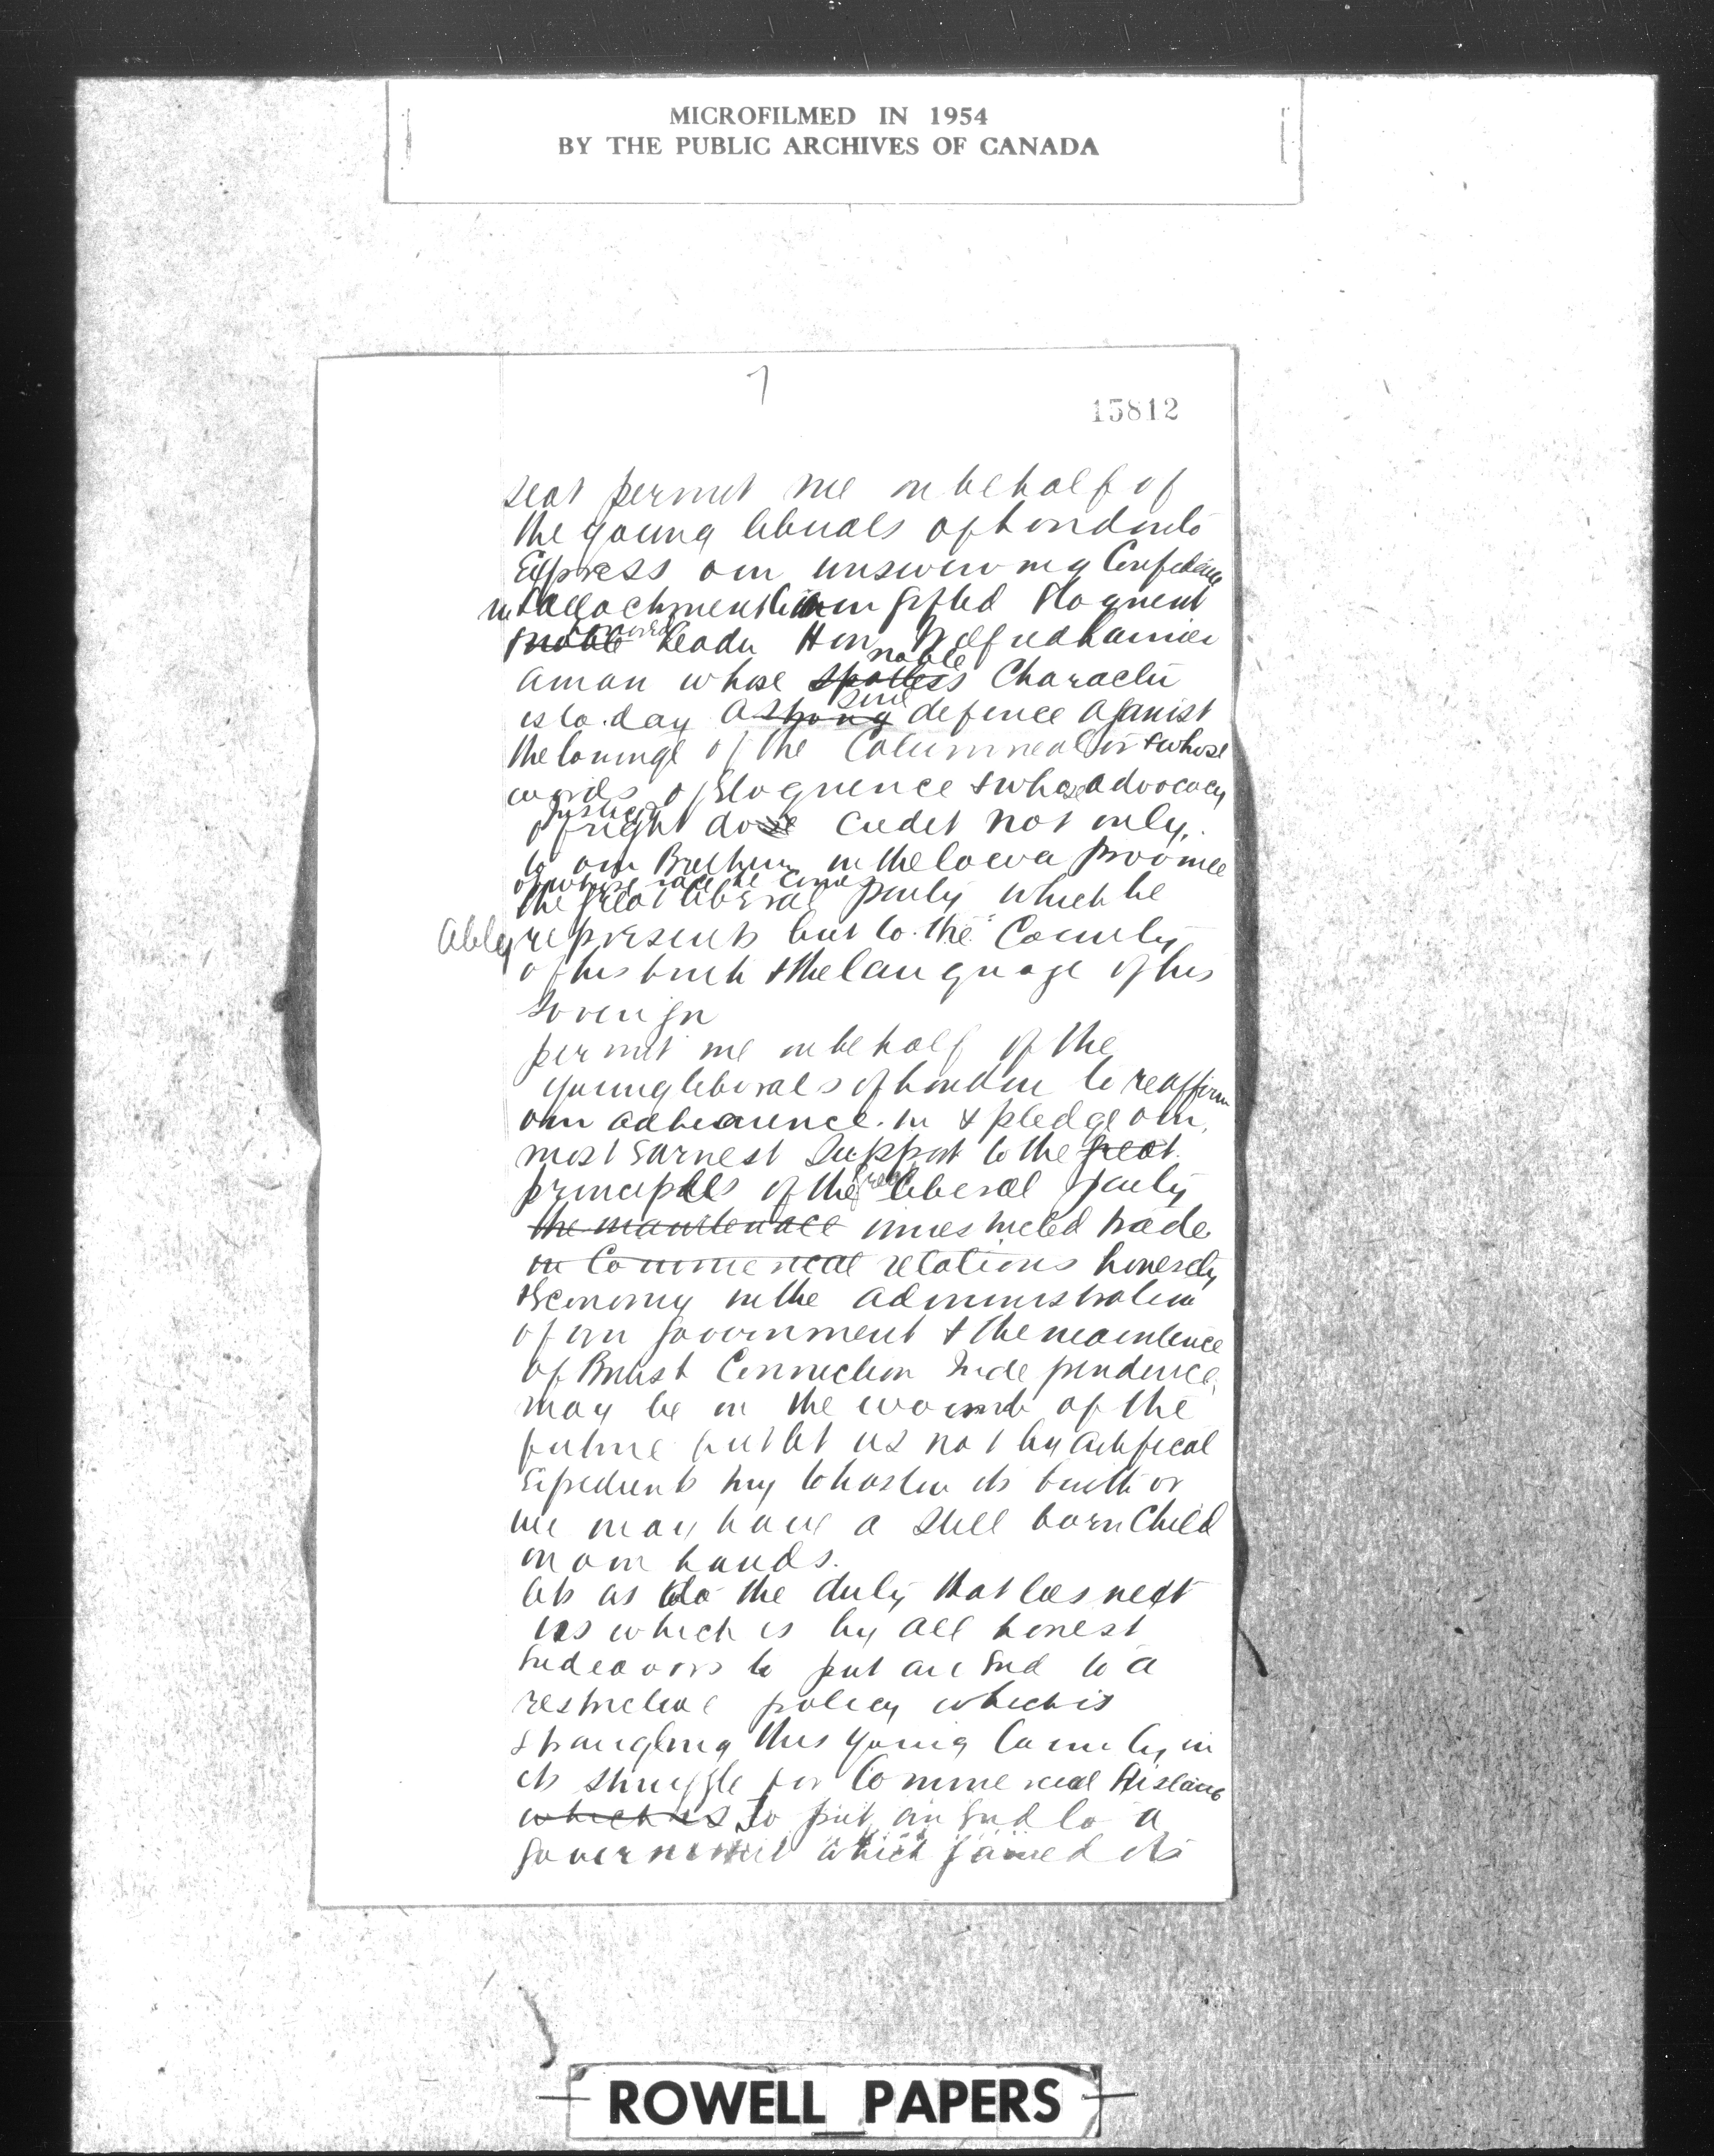 MICROFILMED IN 1954
BY THE PUBLIC ARCHIVES OF CANADA
7
15812
seat permit me on behalf of
the young liberals of London to
Express our unswerving Confidence
in & attachment to our gifted Eloquent
noble Leader Hon Wilfred Laurier
noble
a man whose spotless Character
sure
is to.day a strong defence against
the tounge of the & whose
words of Eloquence & whose advocacy
Justice &
of right do credit not only
to our Brethern in the lower province
of whose race he comes
the great liberal party which he
Ably represents but to the County
of his birth & the language of his
Soverign
permit me on behalf of the
young liberals of London to reaffirm
our adhearence in & pledge our
most Earnest Support to the great
great
principles of the liberal party
the maintenace unrestricted trade
in Commerical relations honesty
& Economy in the administration
of our government & the maintence
of British Connection Independence
may be in the womb of the
future but let us not by artifical
Expedients try to hasten its birth or
we may have a still born Child
on our hands.
let us do the duty that lies next
us which is by all honest
Endeavors to put an End to a
restrictive policy which is
strangling this young Country in
its struggle for Commerical Existance
which is To put an End to a
government which gained its
ROWELL PAPERS